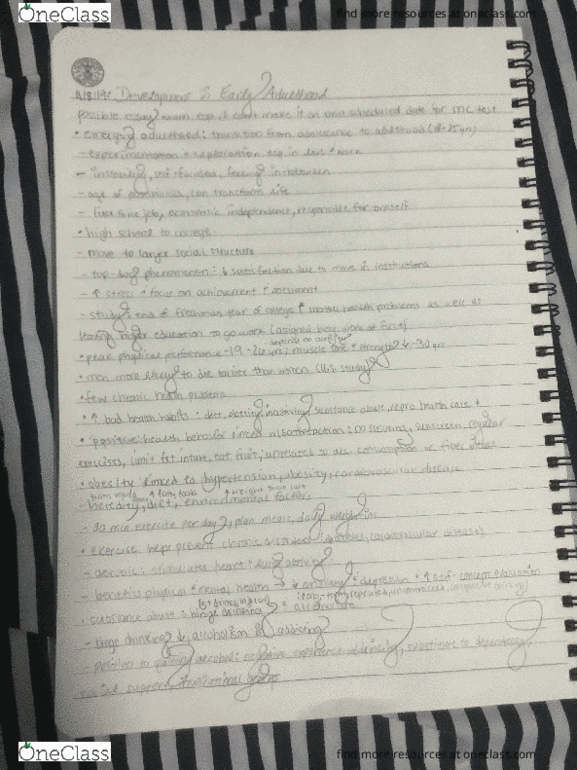 OneClass
find more resources at oneclass.com
11/8/19: Development in Early Adulthood
possible essay exam can't make it on scheduled date for MC test
• emerging adulthood: transition from adolescence to adulthood (18-25 yrs)
- experimentation + exploration esp in love + work
- instability, self-focused, feeling in-between
- age of possibilities, can transform life
- full time job, economic independence, responsible for oneself
• high school to college
- move to larger social structure
- top-dog phenomenon: ↓ satisfaction due to move in institutions
- ↑ stress + focus on achievement + assessment
- study: end of freshman year of college ↑ mental health problems as well as
leaving higher education to go work (assigned at first)
depends on
• peak physical performance - 19-26 yrs, muscle tone + strength ↓ ~30 yrs
• men more likely to die earlier than women (U.S. study)
• few chronic health problems
• ↑ bad health habits: diet, sleeping, inactivity, substance abuse, repro health care ↓
• 'positive' health behavior life satisfaction: no smoking, sunscreen, regular
exercises, limit fat intake, eat fruit, unrelated to alc. consumption or fiber intake
• obesity linked to hypertension, obesity, cardiovascular disease
↑ fatty foods
- heredity, diet, environmental factors
- 30 min exercise per day, plan meals, daily weigh ins
• exercise helps prevent chronic disorders (diabetes, cardiovascular disease)
- aerobic: stimulates heart + lung activity
- benefits physical + mental health → ↓ anxiety + depression + ↑ self-concept evaluation
• substance abuse: binge drinking + alcoholism
- binge drinking ↓, alcoholism addicting
- positives to quitting alcohol: negative experience w/ drinking, substitute to dependency,
social support, inspirational groups
OneClass
find more resources at oneclass.com